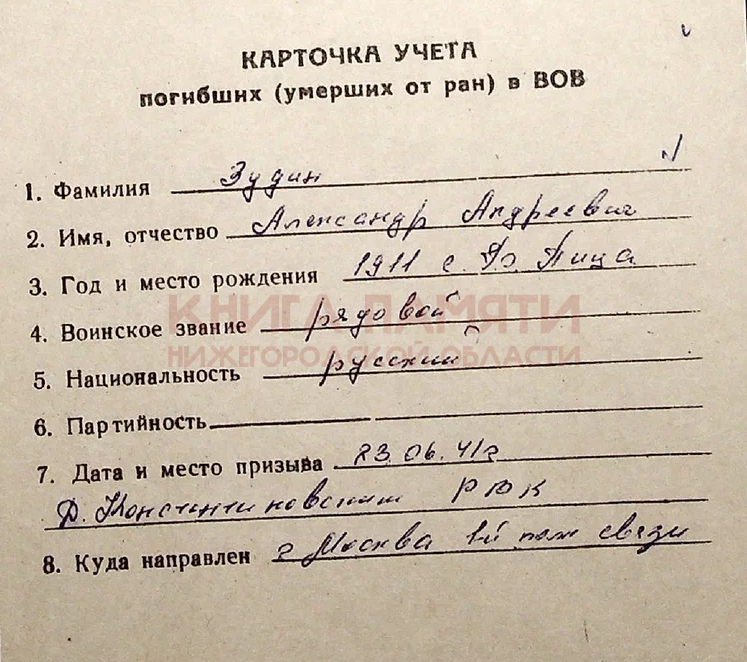 КАРТОЧКА УЧЕТА
погибших (умерших от ран) в ВОВ
1. Фамилия Зудин
2. Имя, отчество Александр Андреевич
3. Год и место рождения 1911 с. Пица
КНИГА ПАМЯТИ
4. Воинское звание рядовой
НИЖЕГОРОДСКОЙ ОБЛАСТИ
5. Национальность русский
6. Партийность
7. Дата и место призыва 23.06.41г
Д. Константиновским РВК
8. Куда направлен г Москва 1й полк связи